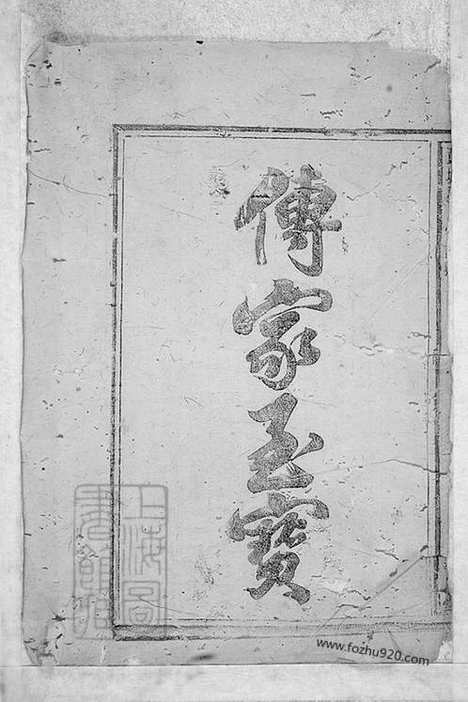 傳家玉寶
上海圖
書館藏
www.fozhu920.com